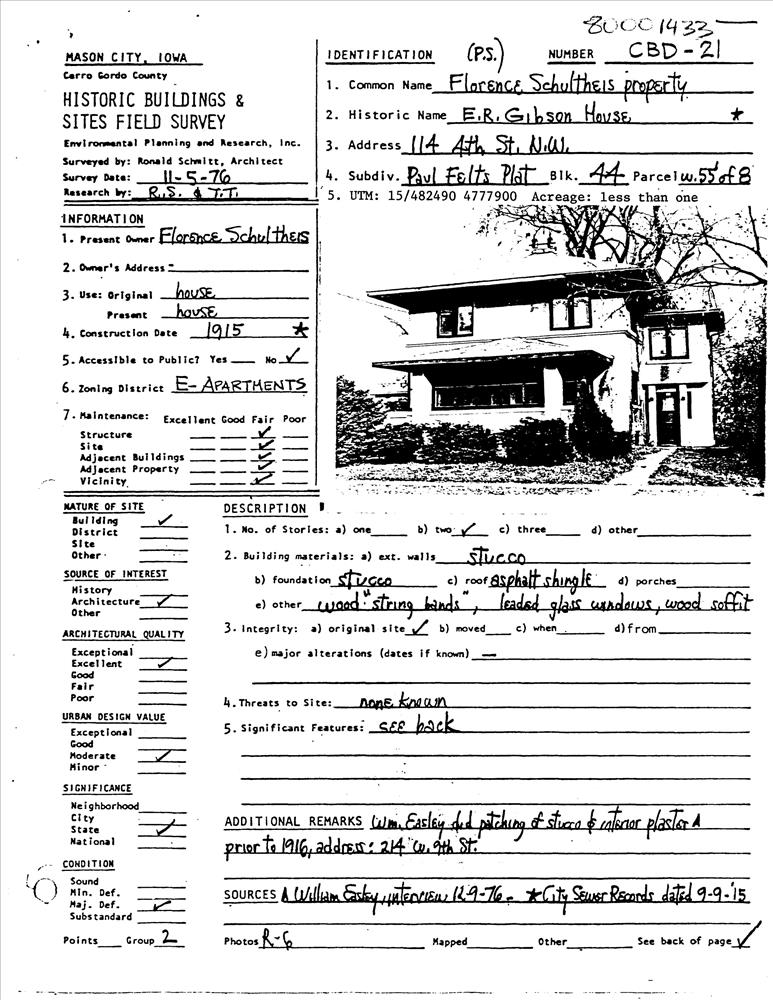 80001433
MASON CITY, IOWA
Cerro Gordo County
HISTORIC BUILDINGS &
SITES FIELD SURVEY
Environmental Planning and Research, Inc.
Surveyed by: Ronald Schmitt, Architect
Survey Date: 11-5-76
Research by: R.S. & T.T.
IDENTIFICATION (P.S.) NUMBER CBD-21
1. Common Name Florence Schultheis property
2. Historic Name E.R. Gibson House *
3. Address 114 4th St. N.W.
4. Subdiv. Paul Felts Plat Blk. 44 Parcel w.55' of 8
5. UTM: 15/482490 4777900 Acreage: less than one
INFORMATION
1. Present Owner Florence Schultheis
2. Owner's Address
3. Use: Original house
Present house
4. Construction Date 1915 *
5. Accessible to Public? Yes No ✓
6. Zoning District E-APARTMENTS
7. Maintenance: Excellent Good Fair Poor
Structure ✓
Site ✓
Adjacent Buildings ✓
Adjacent Property ✓
Vicinity ✓
NATURE OF SITE
Building ✓
District
Site
Other
SOURCE OF INTEREST
History
Architecture ✓
Other
ARCHITECTURAL QUALITY
Exceptional
Excellent ✓
Good
Fair
Poor
URBAN DESIGN VALUE
Exceptional
Good
Moderate ✓
Minor
SIGNIFICANCE
Neighborhood
City
State ✓
National
CONDITION
Sound
Min. Def.
Maj. Def. ✓
Substandard
Points Group 2
DESCRIPTION
1. No. of Stories: a) one b) two ✓ c) three d) other
2. Building materials: a) ext. walls stucco
b) foundation stucco c) roof asphalt shingle d) porches
e) other wood "string bands", leaded glass windows, wood soffit
3. Integrity: a) original site ✓ b) moved c) when d) from
e) major alterations (dates if known) —
4. Threats to Site: none known
5. Significant Features: see back
ADDITIONAL REMARKS Wm. Easley did patching of stucco & interior plaster A
prior to 1916, address: 214 W. 9th St.
SOURCES A William Easley, interview 12-9-76 - * City Sewer Records dated 9-9-'15
Photos R-6 Mapped Other See back of page ✓